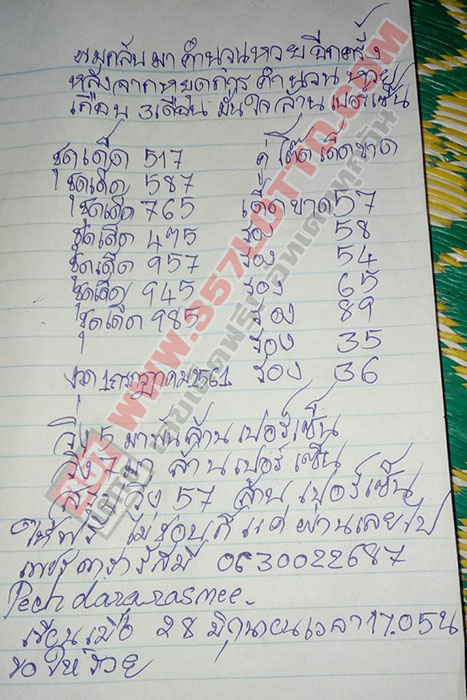 หมุดกลับมาคำนวนหวยอีกครั้ง
หลังจากหยุดการคำนวนหวย
เกือบ 3เดือน มั่นใจล้านเปอร์เซ็น
ชุดเด็ด 517 คู่โต๊ดเด็ดขาด
ชุดเด็ด 587 เด็ดขาด 57
ชุดเด็ด 765 รอง 58
ชุดเด็ด 475 รอง 54
ชุดเด็ด 957 รอง 65
ชุดเด็ด 945 รอง 89
ชุดเด็ด 985 รอง 35
งวด 1กรกฎาคม2561 รอง 36
วิ่ง 5 มาพันล้านเปอร์เซ็น
วิ่ง 7 มา ล้านเปอร์เซ็น
วิ่ง 57 ล้านเปอร์เซ็น
ให้ฟรี ไม่ชอบก็แค่ผ่านเลยไป
เพชรดารารัสมี 0630022687
Pechdararasmee.
เขียนเมื่อ 28 มิถุนายนเวลา17.05น
ขอให้รวย
WWW.357LOTTO.COM